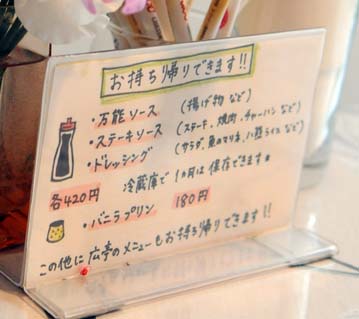 お持ち帰りできます!!
・万能ソース (揚げ物 など)
・ステーキソース (ステーキ、焼肉、チャーハン など)
・ドレッシング (サラダ、魚のマリネ、ライス など)
各420円 冷蔵庫で1ヵ月は保存できます。
・バニラプリン 180円
この他に広亭のメニューもお持ち帰りできます!!